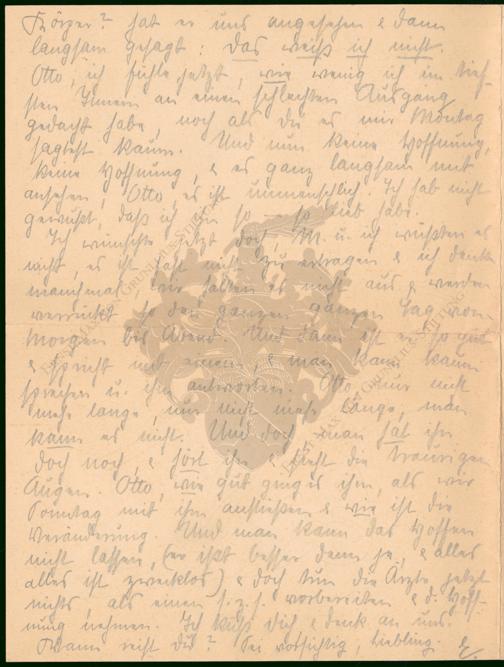 Körper? hat er uns angesehen & dann
langsam gesagt: das weiß ich nicht.
Otto, ich fühle jetzt, wie wenig ich im tief-
sten Innern an einen schlechten Ausgang
gedacht habe, noch als du es mir Montag
sagtest kaum. Und nun keine Hoffnung,
keine Hoffnung, & es ganz langsam mit
ansehen, Otto, es ist unmenschlich. Ich hab nicht
gewußt, daß ich ihn so so lieb habe.
Ich wünschte jetzt doch, M. u. ich wüßten es
nicht, es ist fast nicht zu ertragen & ich denke
manchmal wir halten es nicht aus & werden
verrückt so den ganzen ganzen Tag von
morgen bis Abend. Und dann ist er so gut
& spricht mit einem, & man kann kaum
sprechen u. ihm antworten. Otto, nur nicht
mehr lange, nur nicht mehr lange, man
kann es nicht. Und doch man hat ihn
doch noch, & hört ihn & sieht die traurigen
Augen. Otto, wie gut ging es ihm, als wir
Sonntag mit ihm & wie ist die
Veränderung. Und man kann das Hoffen
nicht lassen, (er ißt besser denn je, & alles
alles ist zwecklos) & doch tun die Ärzte jetzt
nichts, als einen s. z. s. vorbereiten & d. Hoff-
nung nehmen. Ich küß dich & denk an uns.
Wann reist du? Sei vorsichtig, Liebling.